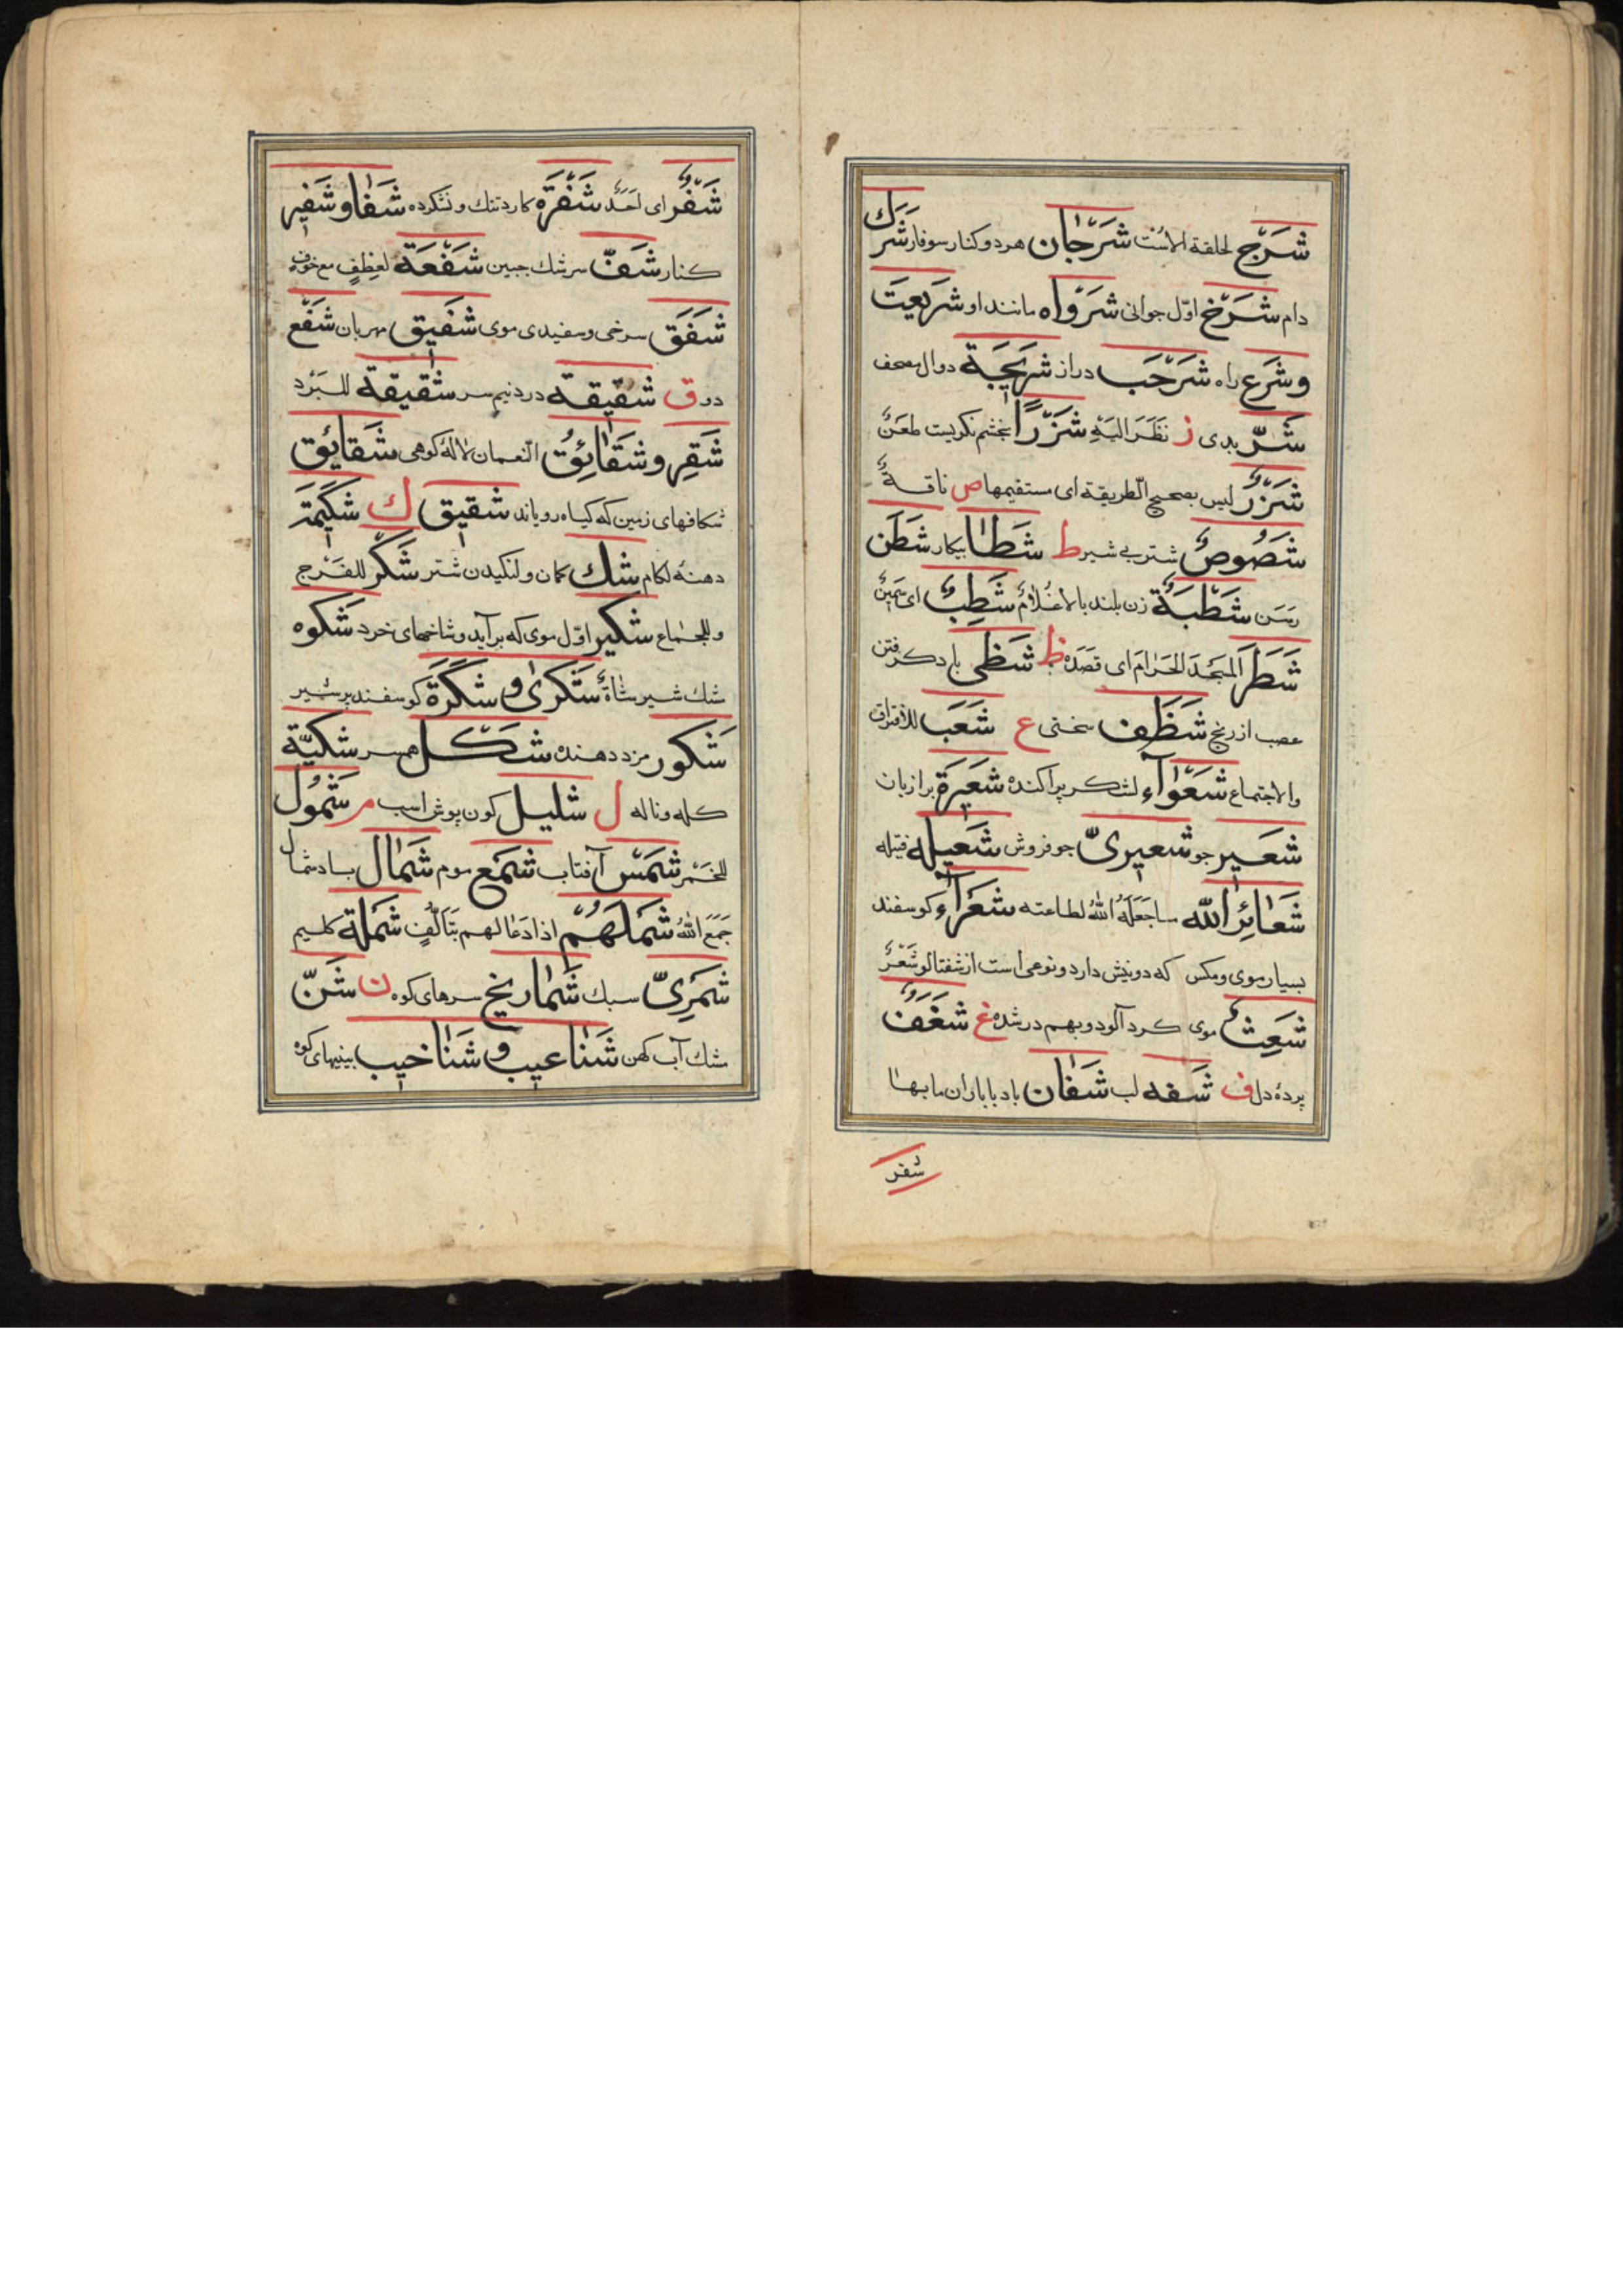 شَرَج لحلقة الاست شَرْجان هر دو کنار سوفار شَرَك
دام شَرْخ اوّل جوانی شَرْواه مانند او شَریعت
و شَرْع راه شَرْحَب دراز شَریجَة دوال مصحف
شَرّ بدی ز نَظَرَ الَیْهِ شَزْرًا بخشم نکریست طَعْنٌ
شَزْرٌ لیس بصحیح الطریقة ای مستقیمها ص ناقةٌ
شَصُوصٌ شتر بی شیر ط شَطَا بیکار شَطَن
رَسَن شَطْبَةٌ زن بلند بالا غُلامٌ شَطِبٌ ای سَمینٌ
شَطْرَ المَسْجِدَ الحَرَام ای قصده ظ شَظی کرفتن
عصب از رنج شَظَف سختی ع شَعَب للافتراق
والاجتماع شَعْوَآء لشکر پراکنده شَعِیرَة برازبان
شَعیر جو شَعیریّ جو فروش شَعیله فتیله
شَعَائِرُ الله ما جَعَلَهُ اللهُ لطاعته شَعْرَآء کوسفند
بسیار موی و مکس که دو نیش دارد و نوعی است از شفتالو شَعْرٌ
شَعِثٌ موی کرد آلود و بهم در شده غ شَغَفٌ
پردهٔ دل ف شَفه لب شَفّان باد با باران ما بها
شفر
شَفْرٌ ای اَحَدٌ شَفْرَة کارد تنك و نشکرده شَفا و شَفیر
کنار شَفّ سرشك جبین شَفْعَة لعطف مع خوف
شَفَق سرخی و سفیدی موی شَفیق مهربان شَفْع
دو ق شَقیقَة درد نیم سر شَقیقَة للبَرْد
شَقِر و شَقَائِقُ النعمان لالهٔ کوهی شَقایق
شکافهای زمین که کیاه رویاند شَقیق ك شَکیمَة
دهنهٔ لکام شَك کمان و لنکیدن شتر شَکْر للفَرْج
وللجماع شَکیر اوّل موی که بر آید و شاخهای خرد شَکوه
مشك شیر شاةٌ شَکْرىٰ و شَکْرَة کوسفند پر شیر
شَکور مزد دهنده شَکْل همسر شَکیّة
کله و ناله ل شَلیل کون پوش اسب م شَمُول
للخَمْر شَمْس آفتاب شَمْع موم شَمال باد شمال
جَمَعَ اللهُ شَمْلَهُمْ اذا دَعَا لهم بتَألّفٍ شَمْلَة کلیم
شَمَرِیّ سبك شَماریخ سرهای کوه ن شَنّ
مشك آب کهن شَناعیب و شَناخیب بینیهای کوه